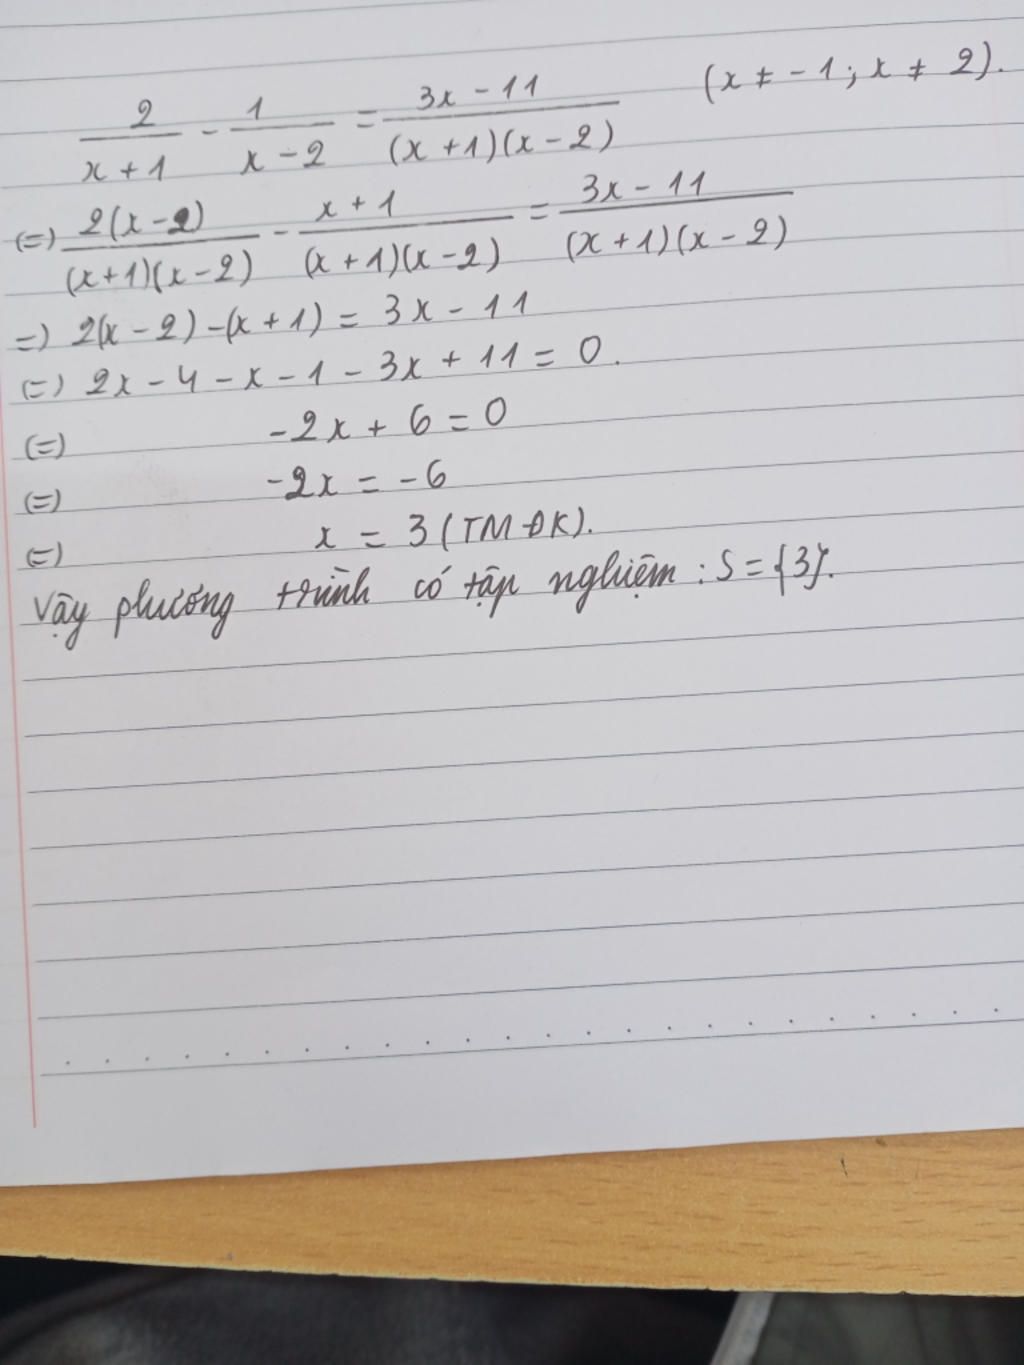 2/(x+1) - 1/(x-2) = (3x-11)/((x+1)(x-2)) (x ≠ -1; x ≠ 2).
(=) 2(x-2)/((x+1)(x-2)) - (x+1)/((x+1)(x-2)) = (3x-11)/((x+1)(x-2))
=) 2(x-2)-(x+1) = 3x-11
(=) 2x-4-x-1-3x+11=0.
(=) -2x+6=0
(=) -2x = -6
(=) x = 3 (TMĐK).
Vậy phương trình có tập nghiệm: S={3}.